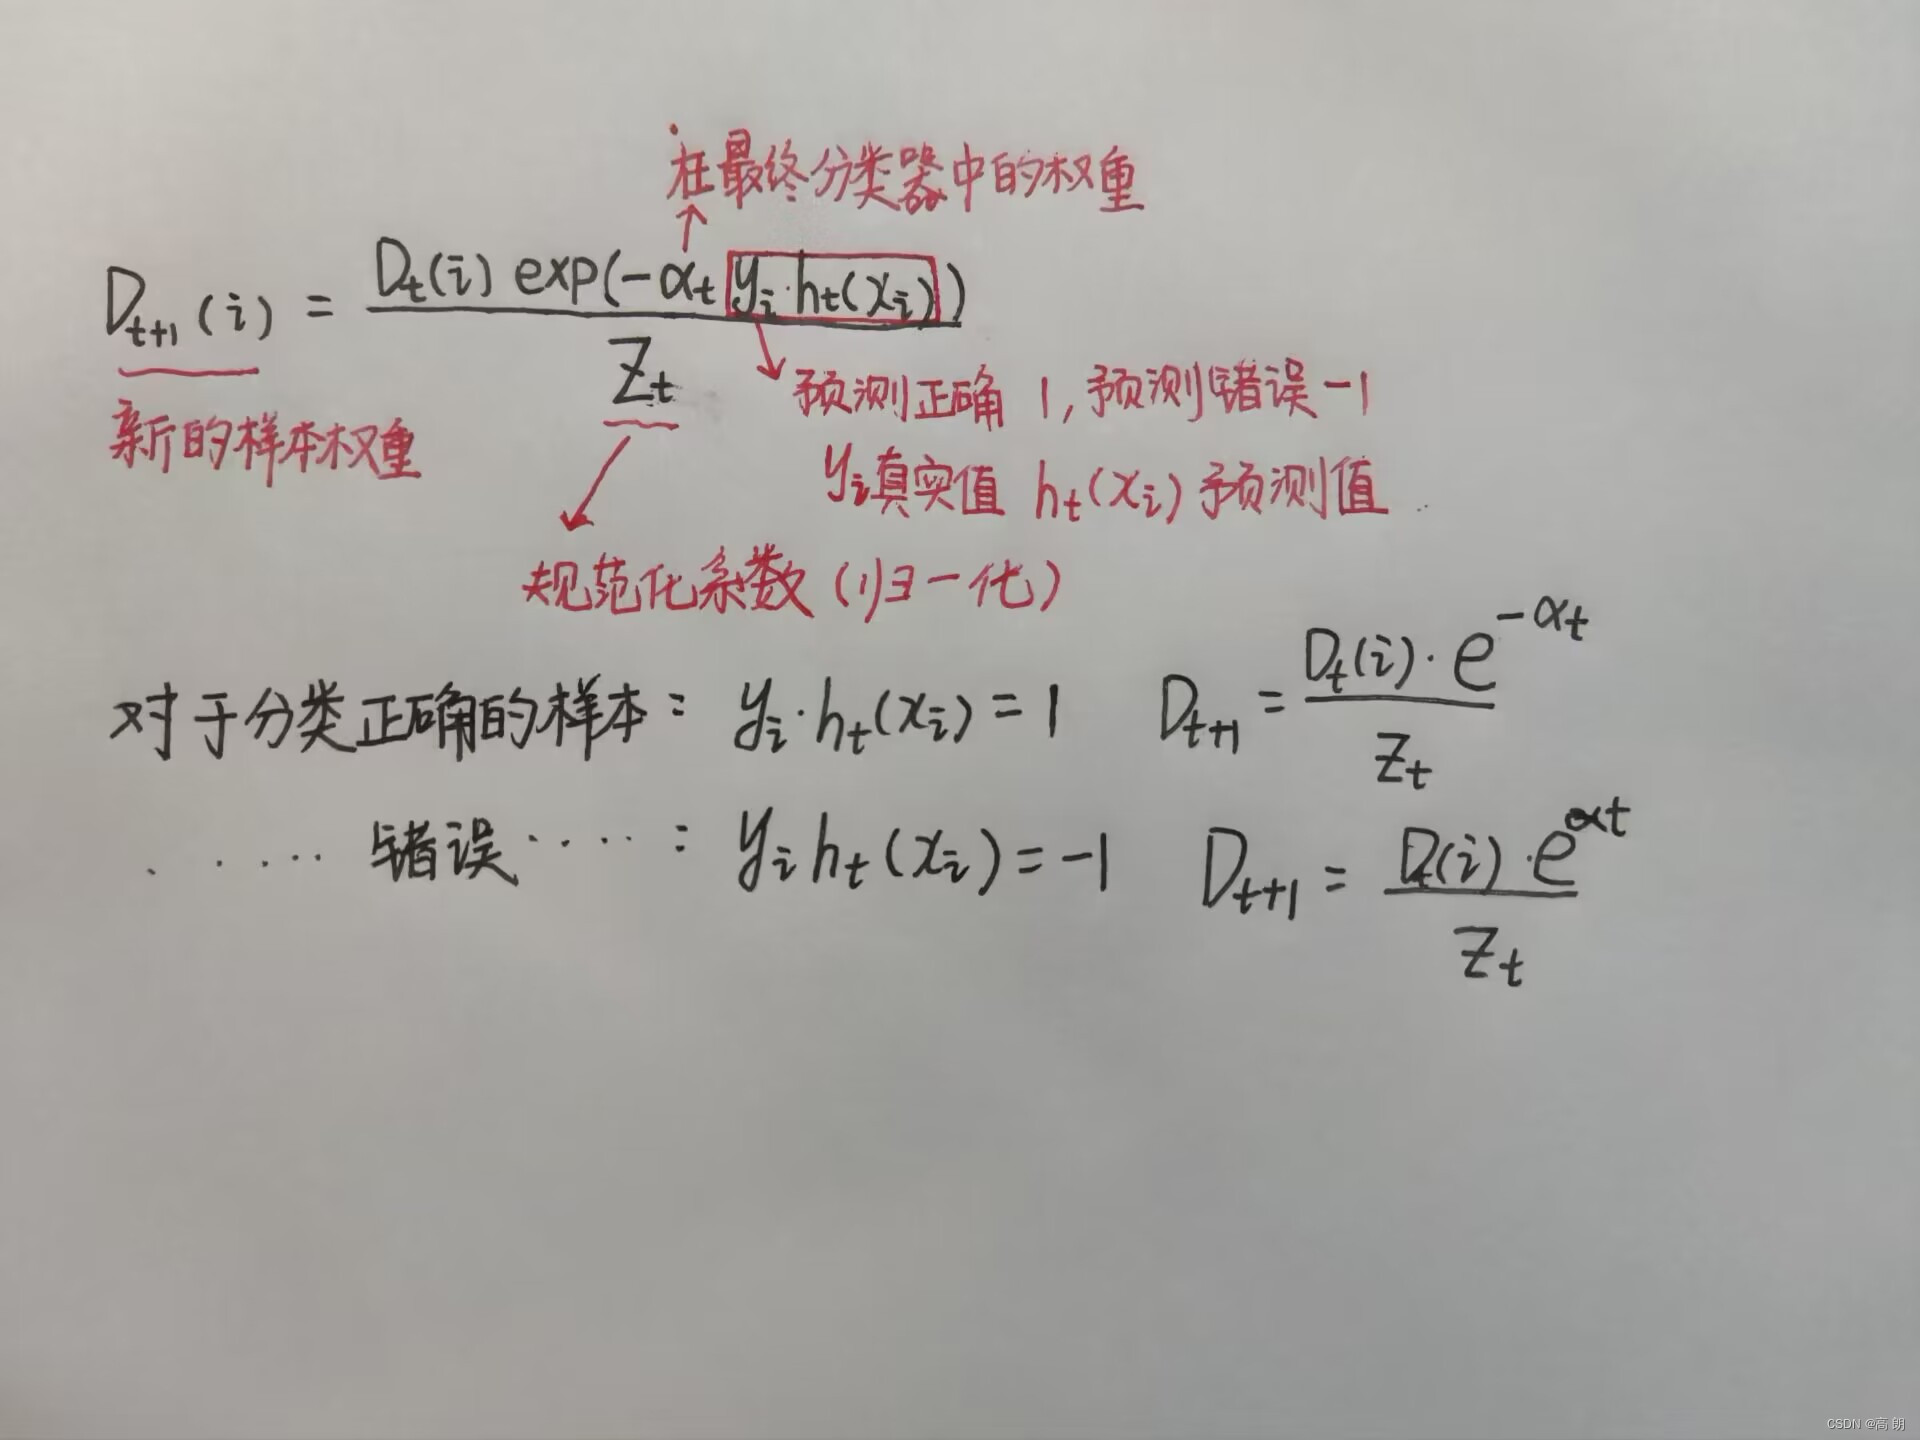 在最终分类器中的权重
D_{t+1}(i) = \frac{D_t(i) exp(-α_t y_i·h_t(x_i))}{Z_t}
新的样本权重
预测正确 1, 预测错误 -1
y_i真实值 h_t(x_i) 预测值
规范化系数 (归一化)
对于分类正确的样本: y_i·h_t(x_i) = 1 D_{t+1} = \frac{D_t(i)·e^{-α_t}}{Z_t}
. ···· 错误 ·····: y_i h_t(x_i) = -1 D_{t+1} = \frac{D_t(i)·e^{αt}}{Z_t}
CSDN @高 朗